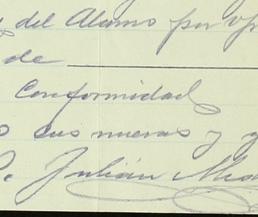 del Alamo por
de
Conformidad
sus nuevas y
Julián